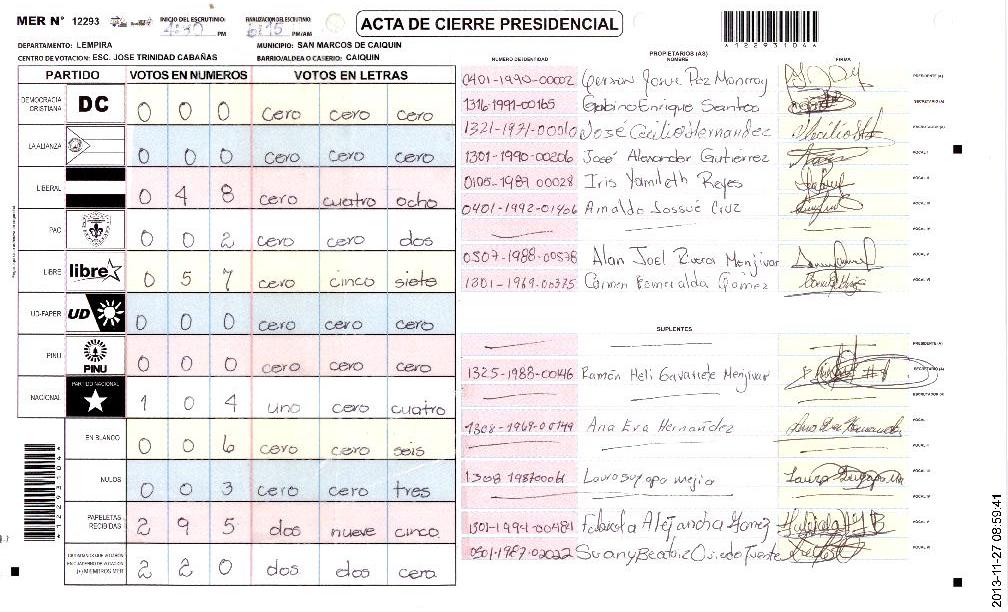 MER N° 12293
INICIO DEL ESCRUTINIO: 4:30 PM
FINALIZACION DEL ESCRUTINIO: 6:15 PM/AM
ACTA DE CIERRE PRESIDENCIAL
*122931046*
DEPARTAMENTO: LEMPIRA
MUNICIPIO: SAN MARCOS DE CAIQUIN
CENTRO DE VOTACION: ESC. JOSE TRINIDAD CABAÑAS
BARRIO/ALDEA O CASERIO: CAIQUIN
PARTIDO VOTOS EN NUMEROS VOTOS EN LETRAS
DEMOCRACIA CRISTIANA DC 0 0 0 cero cero cero
LA ALIANZA 0 0 0 cero cero cero
LIBERAL 0 4 8 cero cuatro ocho
PAC 0 0 2 cero cero dos
LIBRE libre 0 5 7 cero cinco siete
UD-FAPER UD 0 0 0 cero cero cero
PINU PINU 0 0 0 cero cero cero
NACIONAL PARTIDO NACIONAL 1 0 4 uno cero cuatro
EN BLANCO 0 0 6 cero cero seis
NULOS 0 0 3 cero cero tres
PAPELETAS RECIBIDAS 2 9 5 dos nueve cinco
CIUDADANOS QUE VOTARON EN CUADERNO DE VOTACION (+) MIEMBROS MER 2 2 0 dos dos cero
PROPIETARIOS (AS)
NUMERO DE IDENTIDAD NOMBRE FIRMA
0401-1990-00002 Gerson Josue Paz Monroy PRESIDENTE (A)
1316-1991-00165 Gabino Enrique Santos SECRETARIO (A)
1321-1971-00010 José Cecilio Hernandez ESCRUTADOR (A)
1301-1990-00206 José Alexander Gutiérrez VOCAL I
0105-1989 00028 Iris Yamileth Reyes VOCAL II
0401-1992-01406 Arnaldo Jossué Cruz VOCAL III
VOCAL IV
0507-1988-00578 Alan Joel Rivera Menjivar VOCAL V
1301-1969-00375 Carmen Esmeralda Gomez VOCAL VI
SUPLENTES
PRESIDENTE (A)
1325-1988-00146 Ramón Heli Gavarrete Menjivar SECRETARIO (A)
ESCRUTADOR (A)
1308-1969-00149 Ana Eva Hernandez VOCAL I
VOCAL II
1308 198700061 VOCAL III
VOCAL IV
1301-1994-00481 Fabiola Alejandra Gomez VOCAL V
0501-1987-02022 Suany Beatriz VOCAL VI
2013-11-27 08:59:41